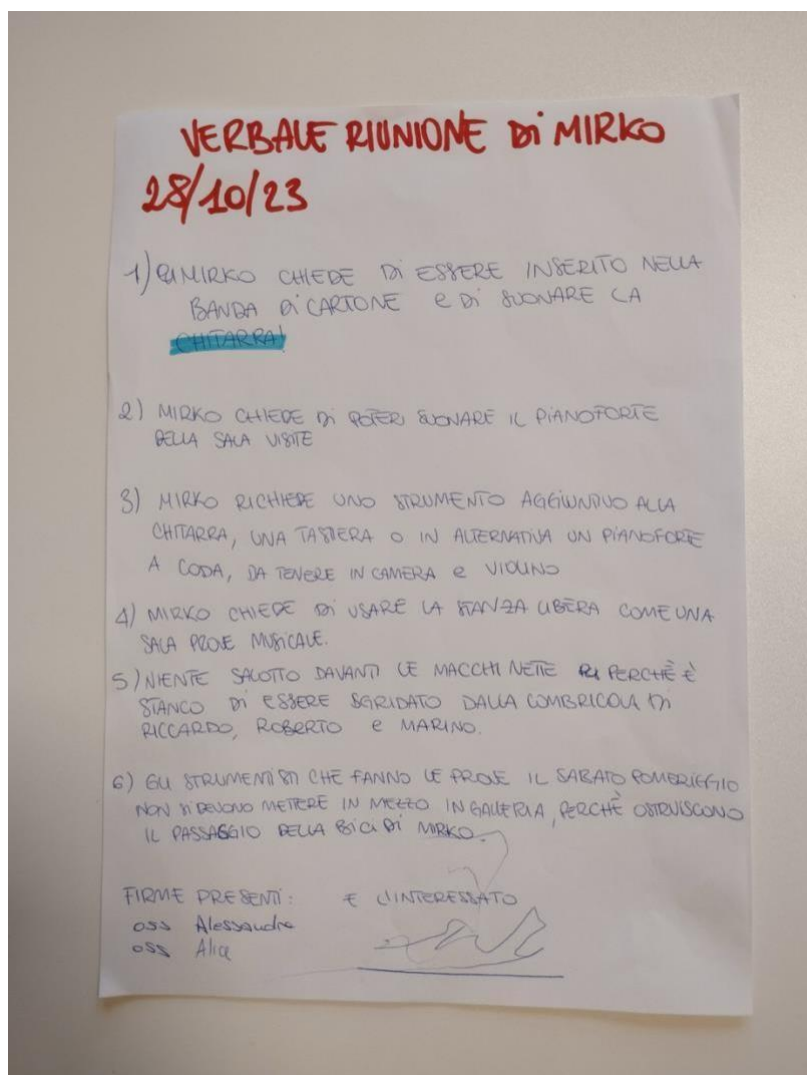 VERBALE RIUNIONE Di MIRKO
28/10/23
1) MIRKO CHIEDE Di ESSERE INSERITO NELLA
BANDA Di CARTONE e Di SUONARE LA
CHITARRA!
2) MIRKO CHIEDE Di POTER SUONARE IL PiANOFORTE
DELLA SALA VISITE
3) MIRKO RICHIEDE UNO STRUMENTO AGGIUNTIVO ALLA
CHITARRA, UNA TASTIERA O IN ALTERNATIVA UN PiANOFORTE
A CODA, DA TENERE IN CAMERA e VIOLINO
4) MIRKO CHIEDE Di USARE LA STANZA LIBERA COME UNA
SALA PROVE MUSICALE.
5) NIENTE SALOTTO DAVANTI LE MACCHINETTE PERCHÈ È
STANCO Di ESSERE SGRIDATO DALLA COMBRICOLA Di
RICCARDO, ROBERTO e MARINO.
6) GLI STRUMENTISTI CHE FANNO LE PROVE IL SABATO POMERIGGIO
NON SI DEVONO METTERE IN MEZZO IN GALLERIA, PERCHÈ OSTRUISCONO
IL PASSAGGIO DELLA BiCi Di MIRKO.
FIRME PRESENTI: E L'INTERESSATO
oss Alessandra
oss Alice